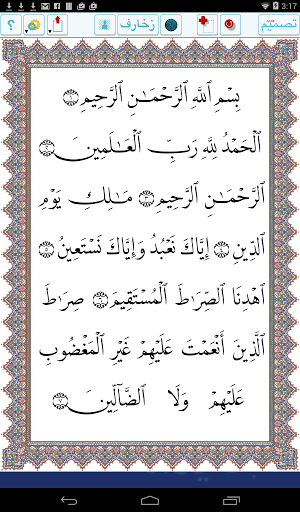 3:17
تصميم جديد زخارف ؟
بِسْمِ ٱللَّهِ ٱلرَّحْمَـٰنِ ٱلرَّحِيمِ ۝١
ٱلْحَمْدُ لِلَّهِ رَبِّ ٱلْعَـٰلَمِينَ ۝٢
ٱلرَّحْمَـٰنِ ٱلرَّحِيمِ ۝٣ مَـٰلِكِ يَوْمِ
ٱلدِّينِ ۝٤ إِيَّاكَ نَعْبُدُ وَإِيَّاكَ نَسْتَعِينُ ۝٥
ٱهْدِنَا ٱلصِّرَٰطَ ٱلْمُسْتَقِيمَ ۝٦ صِرَٰطَ
ٱلَّذِينَ أَنْعَمْتَ عَلَيْهِمْ غَيْرِ ٱلْمَغْضُوبِ
عَلَيْهِمْ وَلَا ٱلضَّآلِّينَ ۝٧